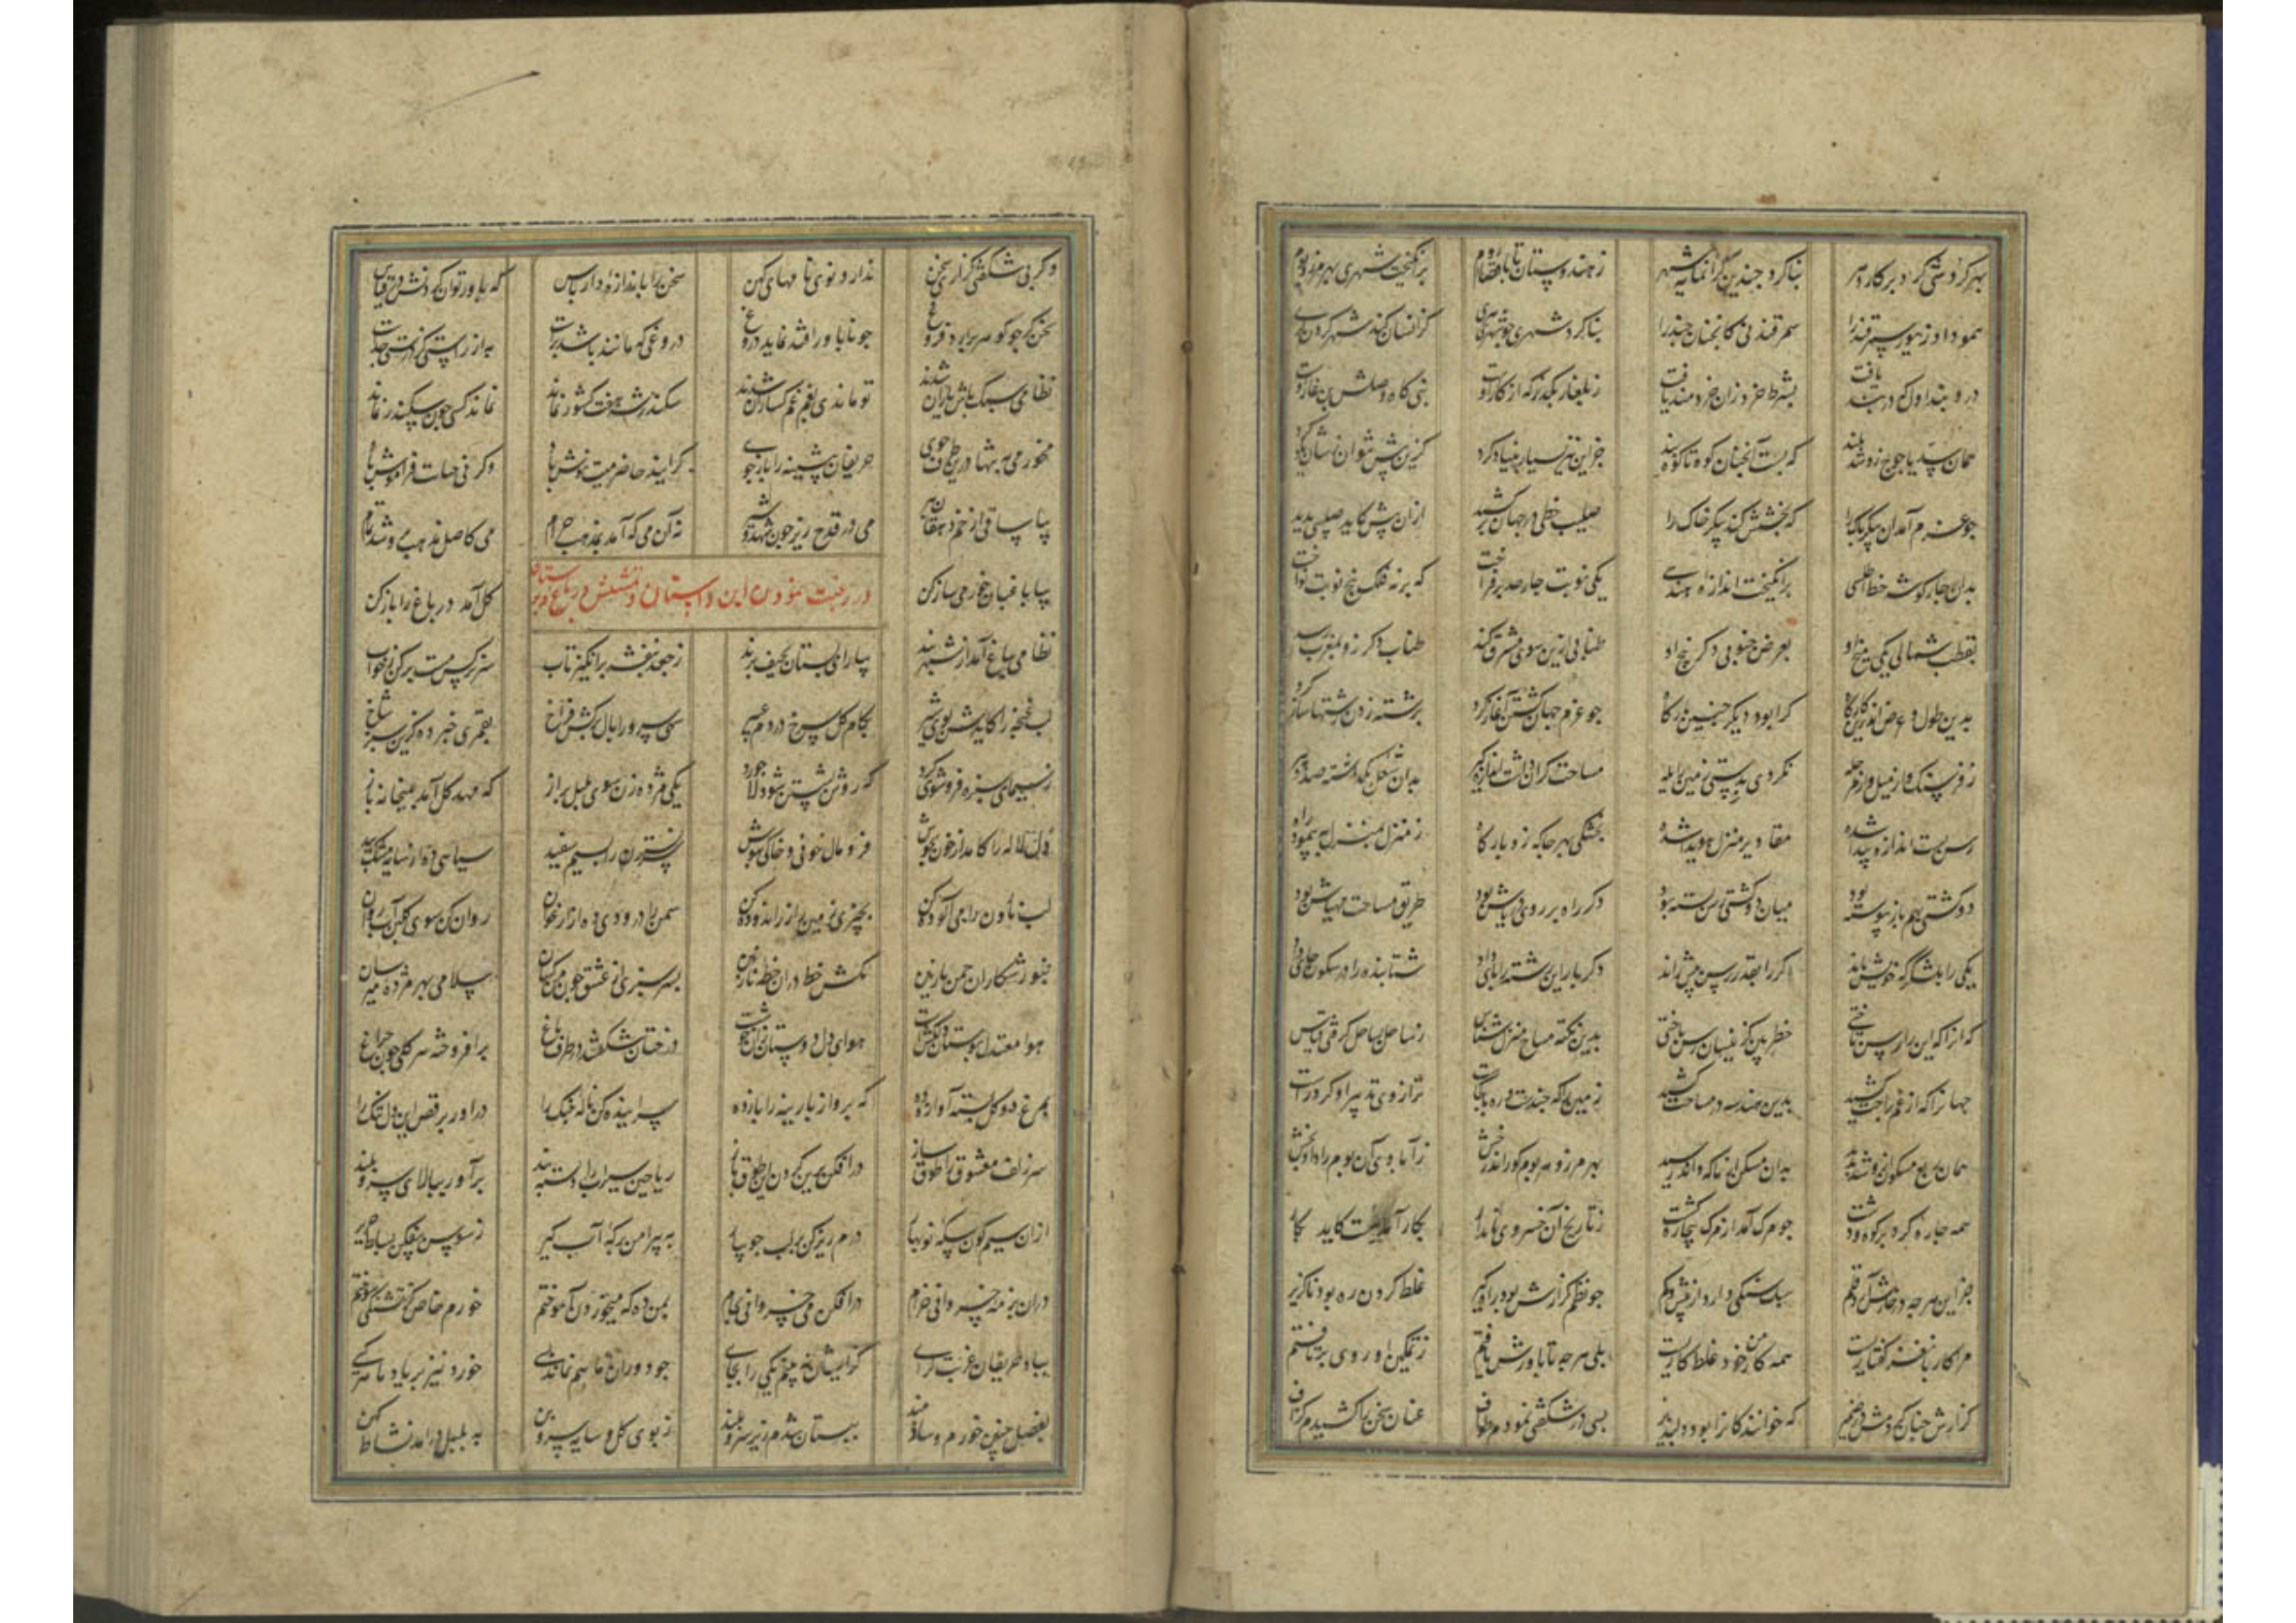 بهر کردشی کرد برکار دهر بنا کرد چندین کرانمایه شهر ز هندوستان تا باقصای روم برانکیخت شهری بهر مرز و بوم
همو داد زیور سمرقند را سمرقند نی کانچنان چند را بنا کرد شهری چو شهر هری کزانسان کند شهر کردن کری
در و بند اول که در بند یافت بشرط خرد زان خردمند یافت ز بلغار بکذر که از کار اوست بنی کاه اصلش بن غار اوست
همان سد یاجوج زو شد بلند که بست آنچنان کوه تا کوه بند جز این نیز بسیار بنیاد کرد کزین پیش نتوان نشان یاد کرد
چو عزم آمد آن پیکر پاک را که بخشش کند پیکر خاک را صلیب خطی در جهان برکشید از آن پیش کاید صلیبی پدید
بدان چار کوشه خط اطلسی برانکیخت اندازه هندسی یکی نوبت چار حد برفراخت که برنه فلک پنج نوبت نواخت
بقطب شمالی یکی میخ او بعرض جنوبی دکر بیخ او طنابی ازین سوی مشرق کشید طناب دکر زو بمغرب رسید
بدین طول و عرض اندرین کارکاه کرا بود دیکر چنین بارکاه چو عزم جهان کشتن آغاز کرد برشته زدن رشتها ساز کرد
ز فرسنک و از میل و از مرحله نکردی بدستی زمین را یله مساحت کران داشت اندازه کیر بدان شغل بکماشته صد دبیر
رسن بست اندازه پیدا شده مقادیر منزل هویدا شده بخشکی بهر جا که زد بارکاه ز منزل بمنزل بپیمود راه
دو کشتی بهم باز پیوسته بود میان دو کشتی رسن بسته بود دکر راه بر روی دریاش بود طریق مساحت مهیاش بود
یکی را بلنکرکه خویش ماند دکر را بقدر رسن پیش راند دکر باره این بسته را پای داد شتابنده را در سکون جای داد
که آنرا که این را رسن تاختی خطر بین کزینسان رسن باختی بدین نکته مساح منزل شناس ز ساحل بساحل کرفتی قیاس
جهانرا که از غم براحت کشید بدین هندسه در مساحت کشید زمین را که چندست و ره تا کجاست ترازوی تدبیر او کرد راست
همان ربع مسکون ازو شد پدید بدان مسکن از ما که داند رسید بهر مرز و هر بوم کو راند رخش ز آباد وی آن بوم را داد بخش
همه چاره کرد بر کوه و دشت چو مرک آمد از مرک بیچاره کشت ز تاریخ آن خسروی تاجدار بکار آمد اینست کاید بکار
جز این هر چه در خارش آرد قلم سبک سنکی دارد از بیش و کم چو نظم کزارش بود راه کیر غلط کردن ره بود ناکزیر
مرا کار با نغز کفتاریست همه کار من خود غلط کاریست بلی هر چه ناباورش یافتم ز تمکین او روی برتافتم
کزارش چنان کردمش در ضمیر که خوانندکانرا بود دلپذیر بسی در شکفتی نمودم طواف عنان سخن را کشیدم کزاف
وکر بی شکفتی کزاری سخن ندارد نوی نامهای کهن سخن را باندازه دار پاس که باور توان کردنش در قیاس
سخن کر چو کوهر برآرد فروغ چو ناباور افتد نماید دروغ دروغی که مانند باشد براست به از راستی کز درستی جداست
نظامی سبک باش یاران شدند تو ماندی و غم غمکساران شدند سکندر شه هفت کشور نماند نماند کسی چون سکندر نماند
مخور می به تنها درین طرف جوی حریفان پیشینه را باز جوی کر آیند حاضر میت نوش باد وکر نی حسابت فراموش باد
بیا ساقی از خم دهقان پیر می در قدح ریز چون شهد و شیر نه آن می که آمد بمذهب حرام می کاصل مذهب بدو شد تمام
در رغبت نمودن این داستان و نشستن در باغ
بیا باغبان خرمی ساز کن کل آمد در باغ را باز کن
نظامی بباغ آمد از شهربند بیارای بستان بچینی پرند ز جعد بنفشه برانکیز تاب سر نرکس مست برکن ز خواب
لب غنچه را کایدش بوی شیر بکام کل سرخ دردم عبیر سهی سرو را یال برکش فراخ بقمری خبر ده که سبزست شاخ
ز سیمای سبزه فروشوی کرد که روشن بشستن شود لاجورد یکی مژده زن سوی بلبل براز که مهد کل آمد بمیخانه باز
دل لاله را کامد از خون بجوش فرومال خونی و خاکی بپوش نسترن را بسیم سفید سیاهی ده از سایه مشک بید
لب نارون را می آلوده کن بخیری زمین را زراندوده کن سمن را درودی ده از ارغوان روان کن سوی کلبن آب روان
بنورستکاران چمن باز بین مکش خط در آن خط نازنین بسرسبزی از عشق چون من کسان سلامی بهر مژده میرسان
هوا معتدل بوستان دلکش است هوای دل دوستان زان خوشست درختان شکفته در طرف باغ برافروخته هر کلی چون چراغ
بمرغ دو کل بسته آواز ده که پرواز پارینه را باز ده سراینده کن ناله چنک را درآور برقص این دل تنک را
سر زلف معشوق را طوق ساز درافکن برین کردن این طوق باز ریاحین سیراب را دسته بند برآور ببالای سرو بلند
از آن سیمکون سکه نوبهار درم ریز کن بر لب جویبار به پیرامن برکه آب کیر ز سوسن بیفکن بساط حریر
در آن بزمه خسروانی خرام درافکن می خسروانی بجام بمن ده که میخوردن آموختم خورم خاصه کز تشنکی سوختم
بیاد حریفان غربت کرای کزیشان نبینم یکی را بجای چو دوران ما هم نماند بسی خورد نیز بر یاد ما هر کسی
بفصل چنین خورم و ساز مند ببستان شدم زیر سرو بلند ز بوی کل و سایه سرو بن به بلبل درآمد نشاط کهن